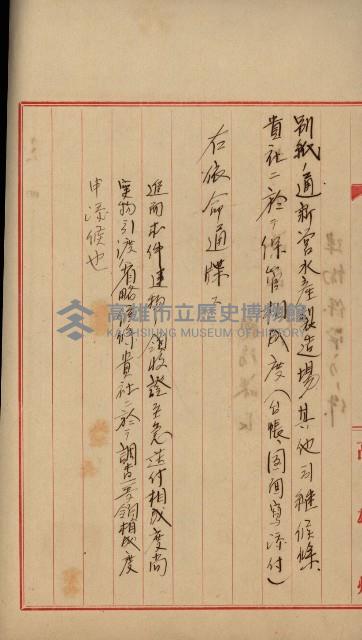 別紙ノ通新營水產製造場其ノ他引繼候條
貴社ニ於テ保管相成度(台帳、圖面寫添付)
右依命通牒ス
追而本件建物ノ領收證至急送付相成度尚
實物引渡省略候條貴社ニ於テ調查受領相成度
申添候也
高雄市立歷史博物館
KAOHSIUNG MUSEUM OF HISTORY